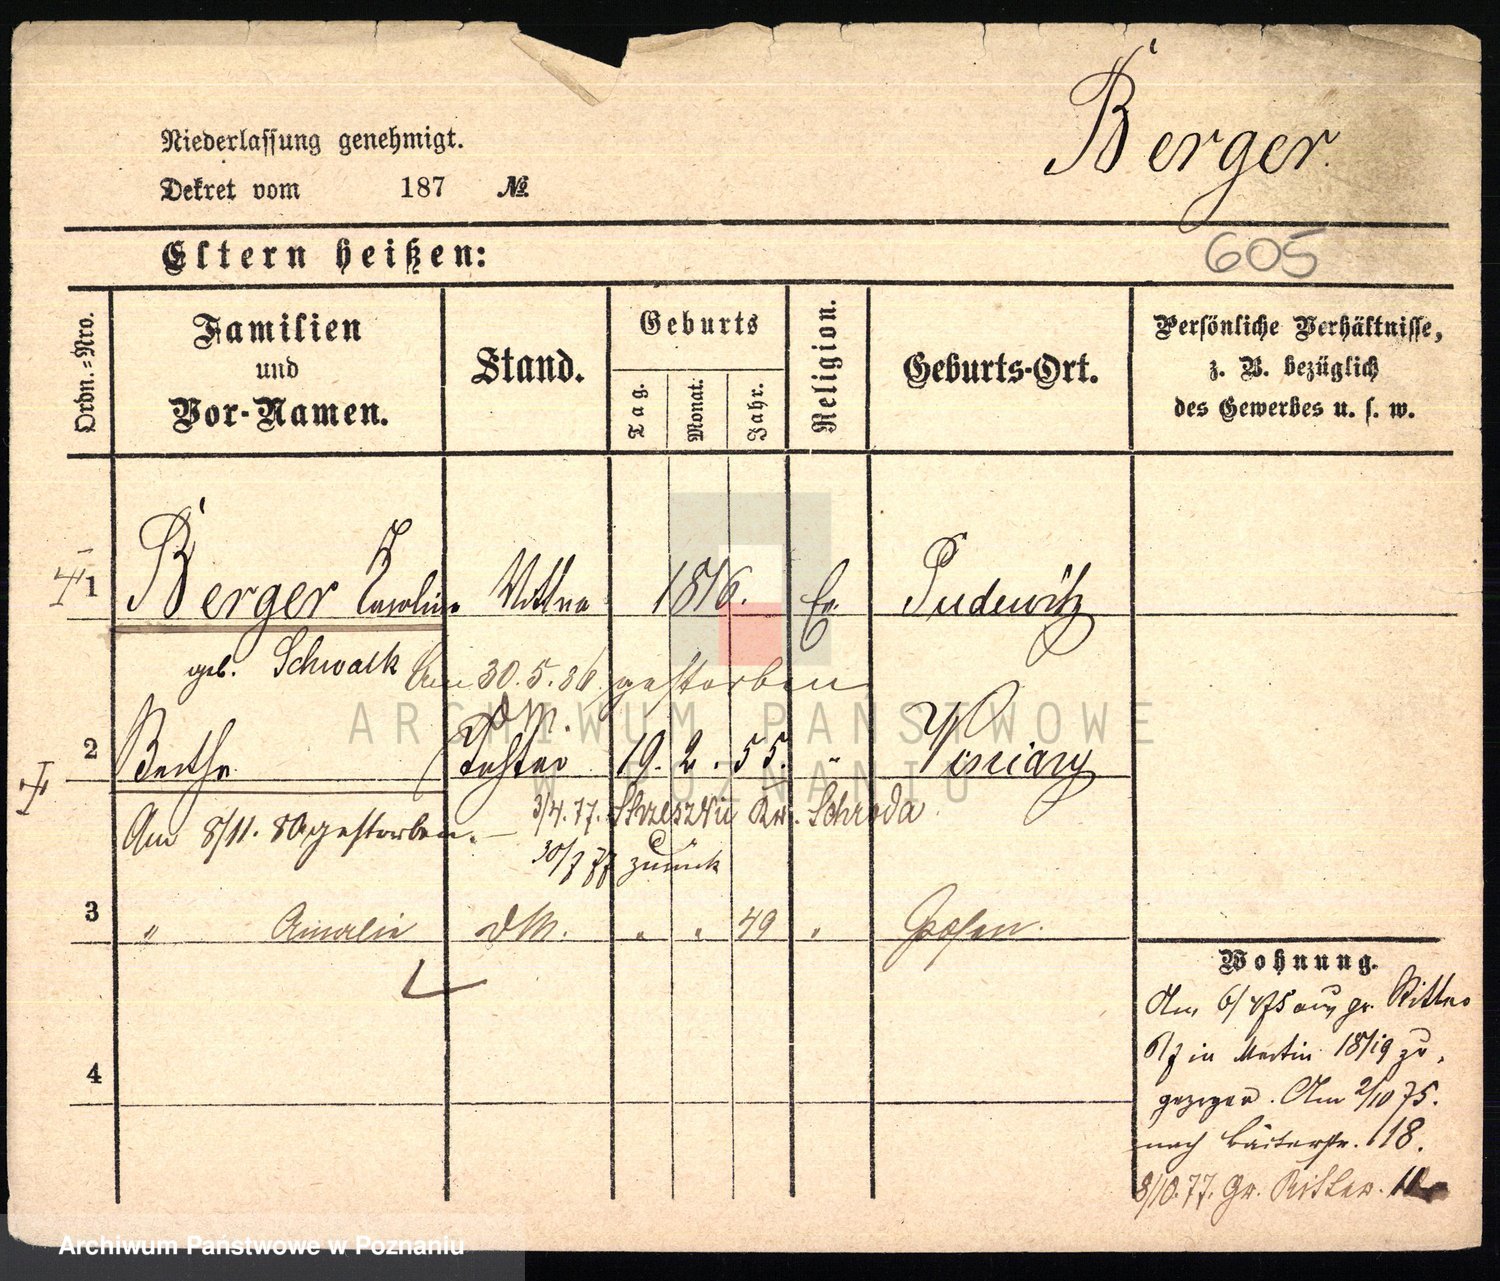 Berger.
Niederlassung genehmigt.
Dekret vom 187 №
Eltern heißen:
605
Ordn.=Nro.
Familien
und
Vor-Namen.
Stand.
Geburts
Tag.
Monat.
Jahr.
Religion.
Geburts-Ort.
Persönliche Verhältnisse,
z. B. bezüglich
des Gewerbes u. s. w.
1 Berger Karoline Wittwe 1816. Ev. Pudewitz
geb. Schwalk Am 30.5.86 gestorben
2 Bertha Tochter 19. 2. 55. " Winiary
Am 8/11. 80 gestorben. — 3/4.77. Skrzeszki Kr. Schroda
30/7 77 zurück
3 " Amalie " " 49 " Posen.
4
Wohnung.
Am 6/4 75 aus gr. Ritter
6/7 in Martin 18/19 zu=
gezogen. Am 2/10 75.
nach Bäckerstr. 118.
3/10.77. Gr. Ritter.
ARCHIWUM PAŃSTWOWE
W POZNANIU
Archiwum Państwowe w Poznaniu